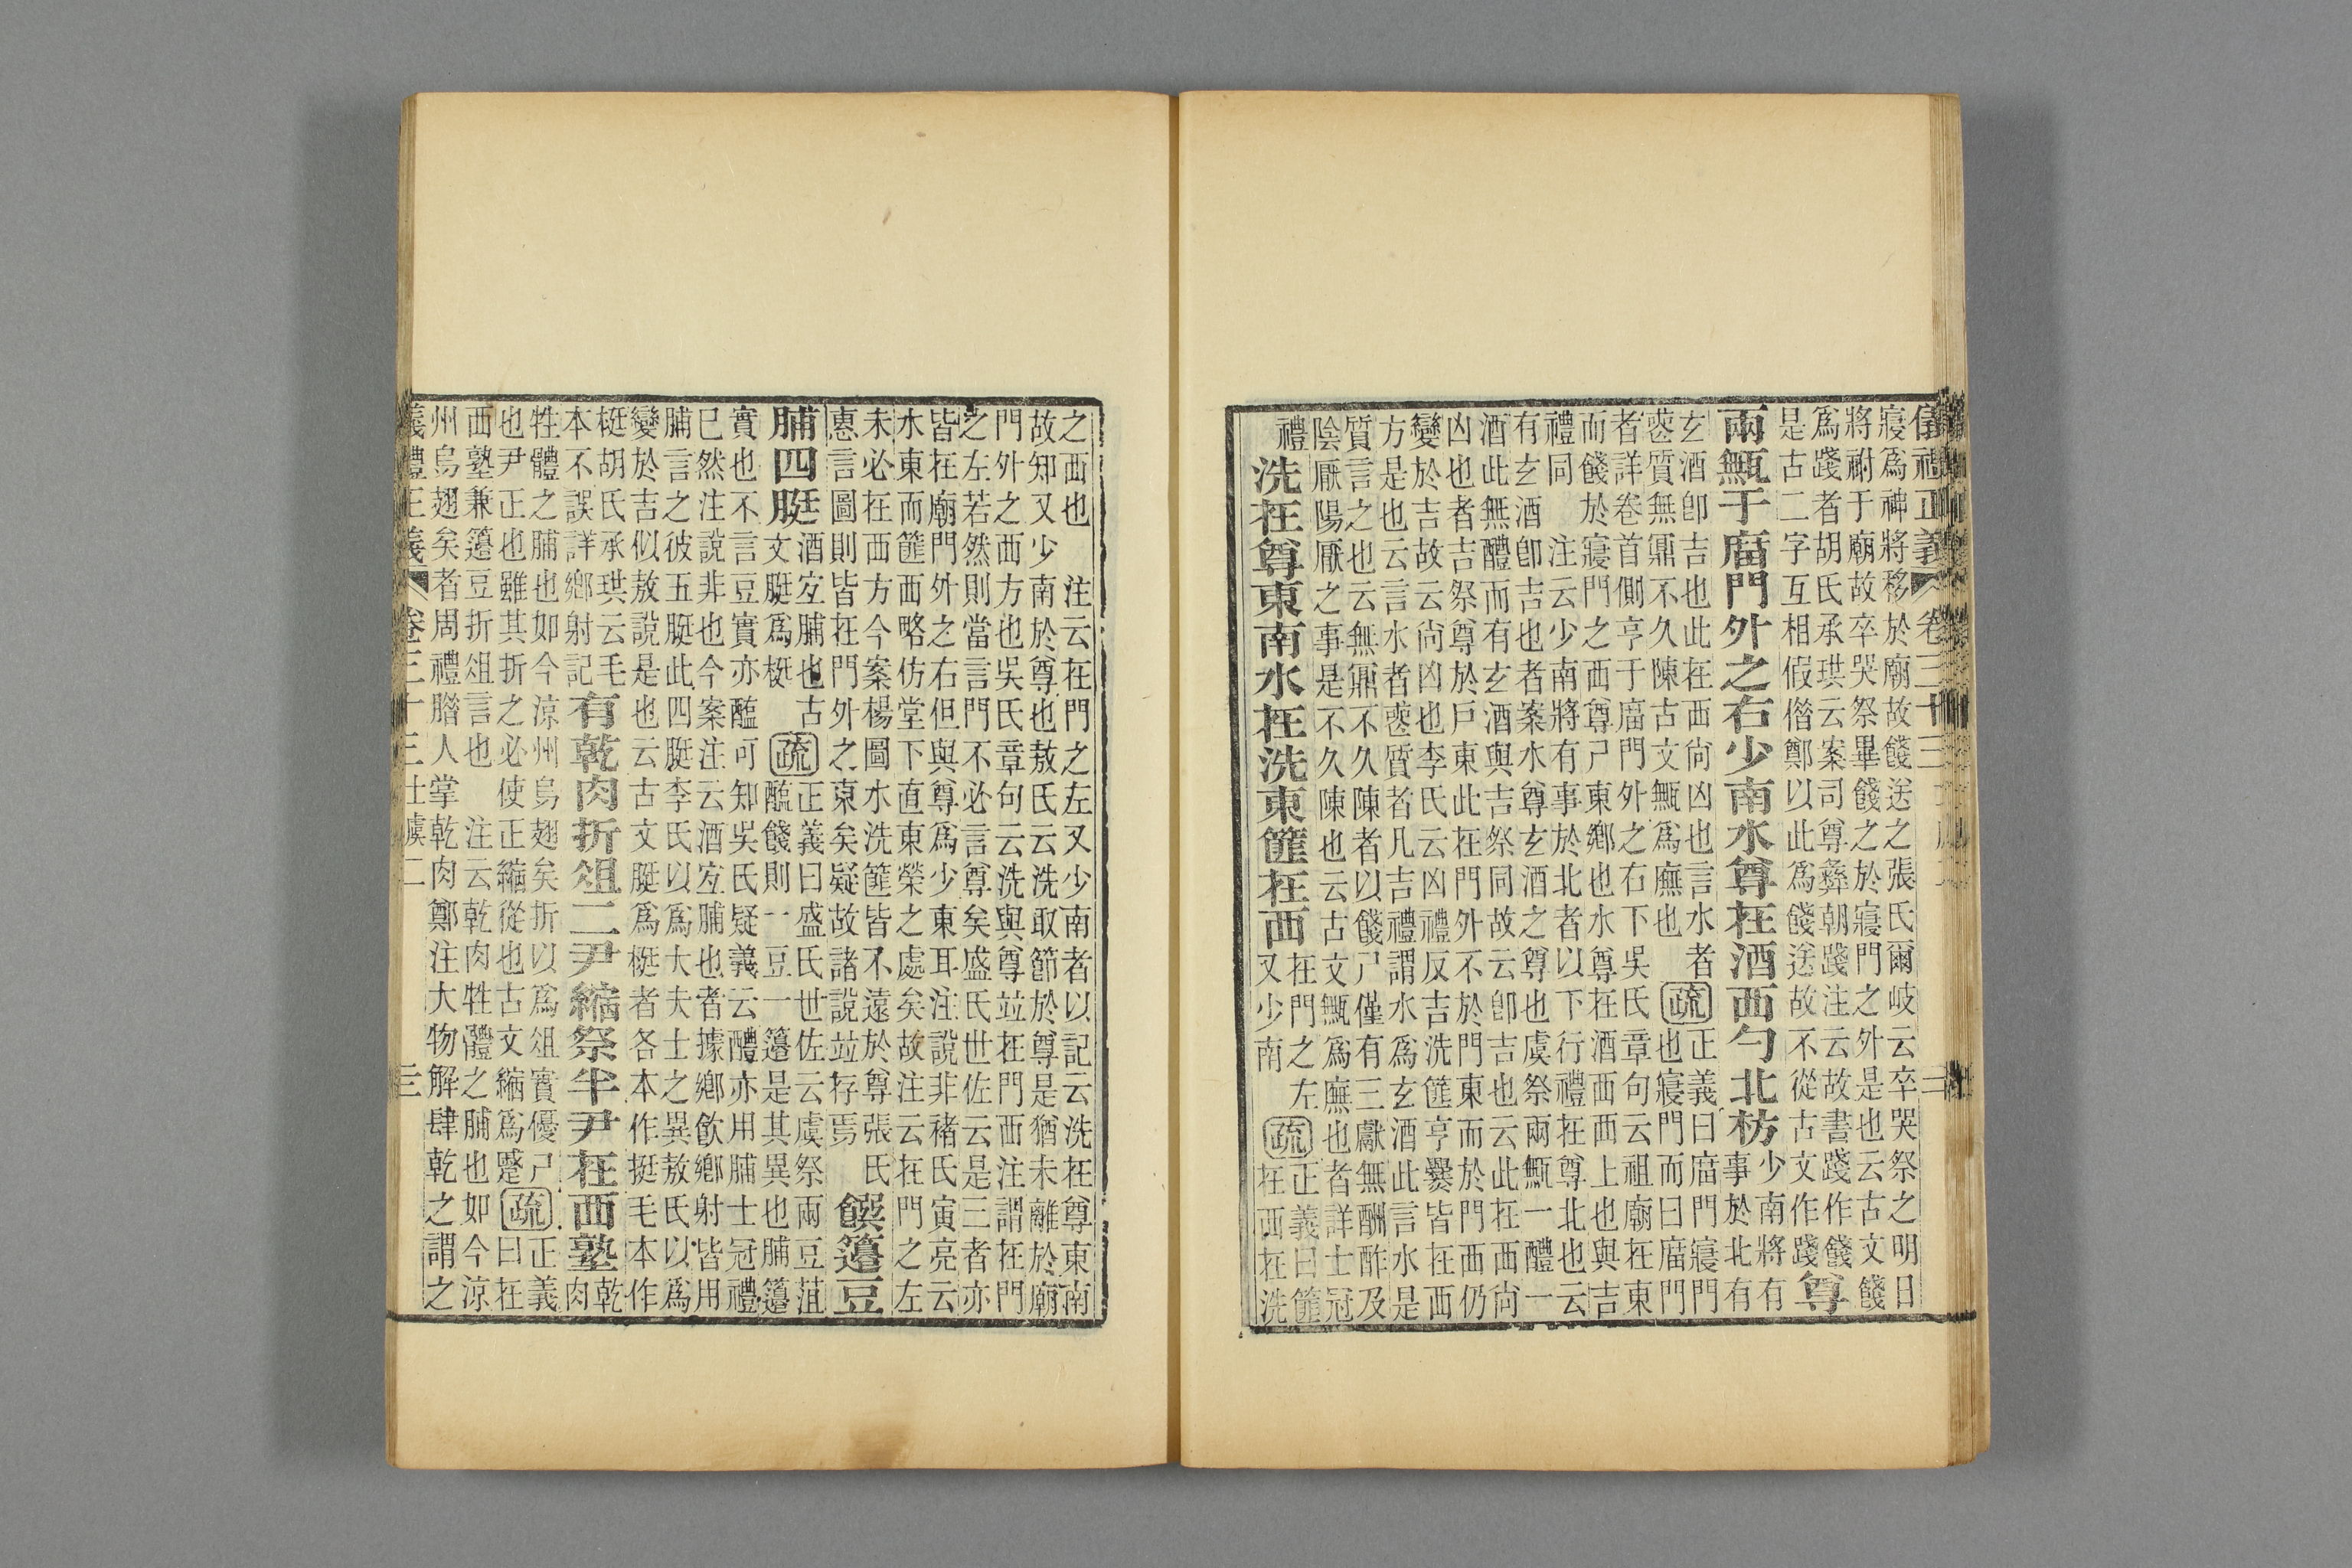 儀禮正義 卷三十三
寢爲神將移於廟故餞送之張氏爾岐云卒哭祭之明日
將祔于廟故卒哭祭畢餞之於寢門之外是也云古文餞
爲踐者胡氏承珙云案司尊彝朝踐注云故書踐作餞
是古二字互相假偕鄭以此爲餞送故不從古文作踐
尊
兩甒于庿門外之右少南水尊在酒西勺北枋
少南將有
事於北有
玄酒卽吉也此在西尙凶也言水者
喪質無鼏不久陳古文甒爲廡也
疏
正義曰庿門寢門
也寢門而曰庿門
者詳卷首側亨于庿門外之右下吳氏章句云祖廟在東
而餞於寢門之西尊尸東鄉也水尊在酒西西上也與吉
禮同　注云少南將有事於北者以下行禮在尊北也云
有玄酒卽吉也者案水尊玄酒之尊也虞祭兩甒一醴一
酒此無醴而有玄酒與吉祭同故云卽吉也云此在西尙
凶也者吉祭尊於戶東此在門外不於門東而於門西仍
變於吉故云尙凶也李氏云凶禮反吉洗篚亨爨皆在西
方是也云言水者喪質者凡吉禮謂水爲玄酒此言水是
質言之也云無鼏不久陳者以餞尸僅有三獻無酬酢及
陰厭陽厭之事是不久陳也云古文甒爲廡也者詳士冠
禮
洗在尊東南水在洗東篚在西
在門之左
又少南
疏
正義曰篚
在西在洗
之西也　注云在門之左又少南者以記云洗在尊東南
故知又少南於尊也敖氏云洗取節於尊是猶未離於廟
門外之西方也吳氏章句云洗與尊竝在門西注謂在門
之左若然則當言門不必言尊矣盛氏世佐云是三者亦
皆在廟門外之右但與尊爲少東耳注說非褚氏寅亮云
水東而篚西略仿堂下直東榮之處矣故注云在門之左
未必在西方今案楊圖水洗篚皆不遠於尊張氏
惠言圖則皆在門外之東矣疑故諸說竝存焉
饌籩豆
脯四脡
酒宜脯也古
文脡爲梃
疏
正義曰盛氏世佐云虞祭兩豆菹
醢餞則一豆一籩是其異也脯籩
實也不言豆實亦醢可知吳氏疑義云醴亦用脯士冠禮
已然注說非也今案注云酒宜脯也者據鄉飮鄉射皆用
脯言之彼五脡此四脡李氏以爲大夫士之異敖氏以爲
變於吉似敖說是也云古文脡爲梃者各本作挺毛本作
梃胡氏承珙云毛
本不誤詳鄉射記
有乾肉折俎二尹縮祭半尹在西塾
乾
肉
牲體之脯也如今涼州烏翅矣折以爲俎實優尸
也尹正也雖其折之必使正縮從也古文縮爲蹙
疏
正義
曰在
西塾兼籩豆折俎言也　注云乾肉牲體之脯也如今涼
州烏翅矣者周禮腊人掌乾肉鄭注大物解肆乾之謂之
義禮正義 卷三十三 士虞二 三